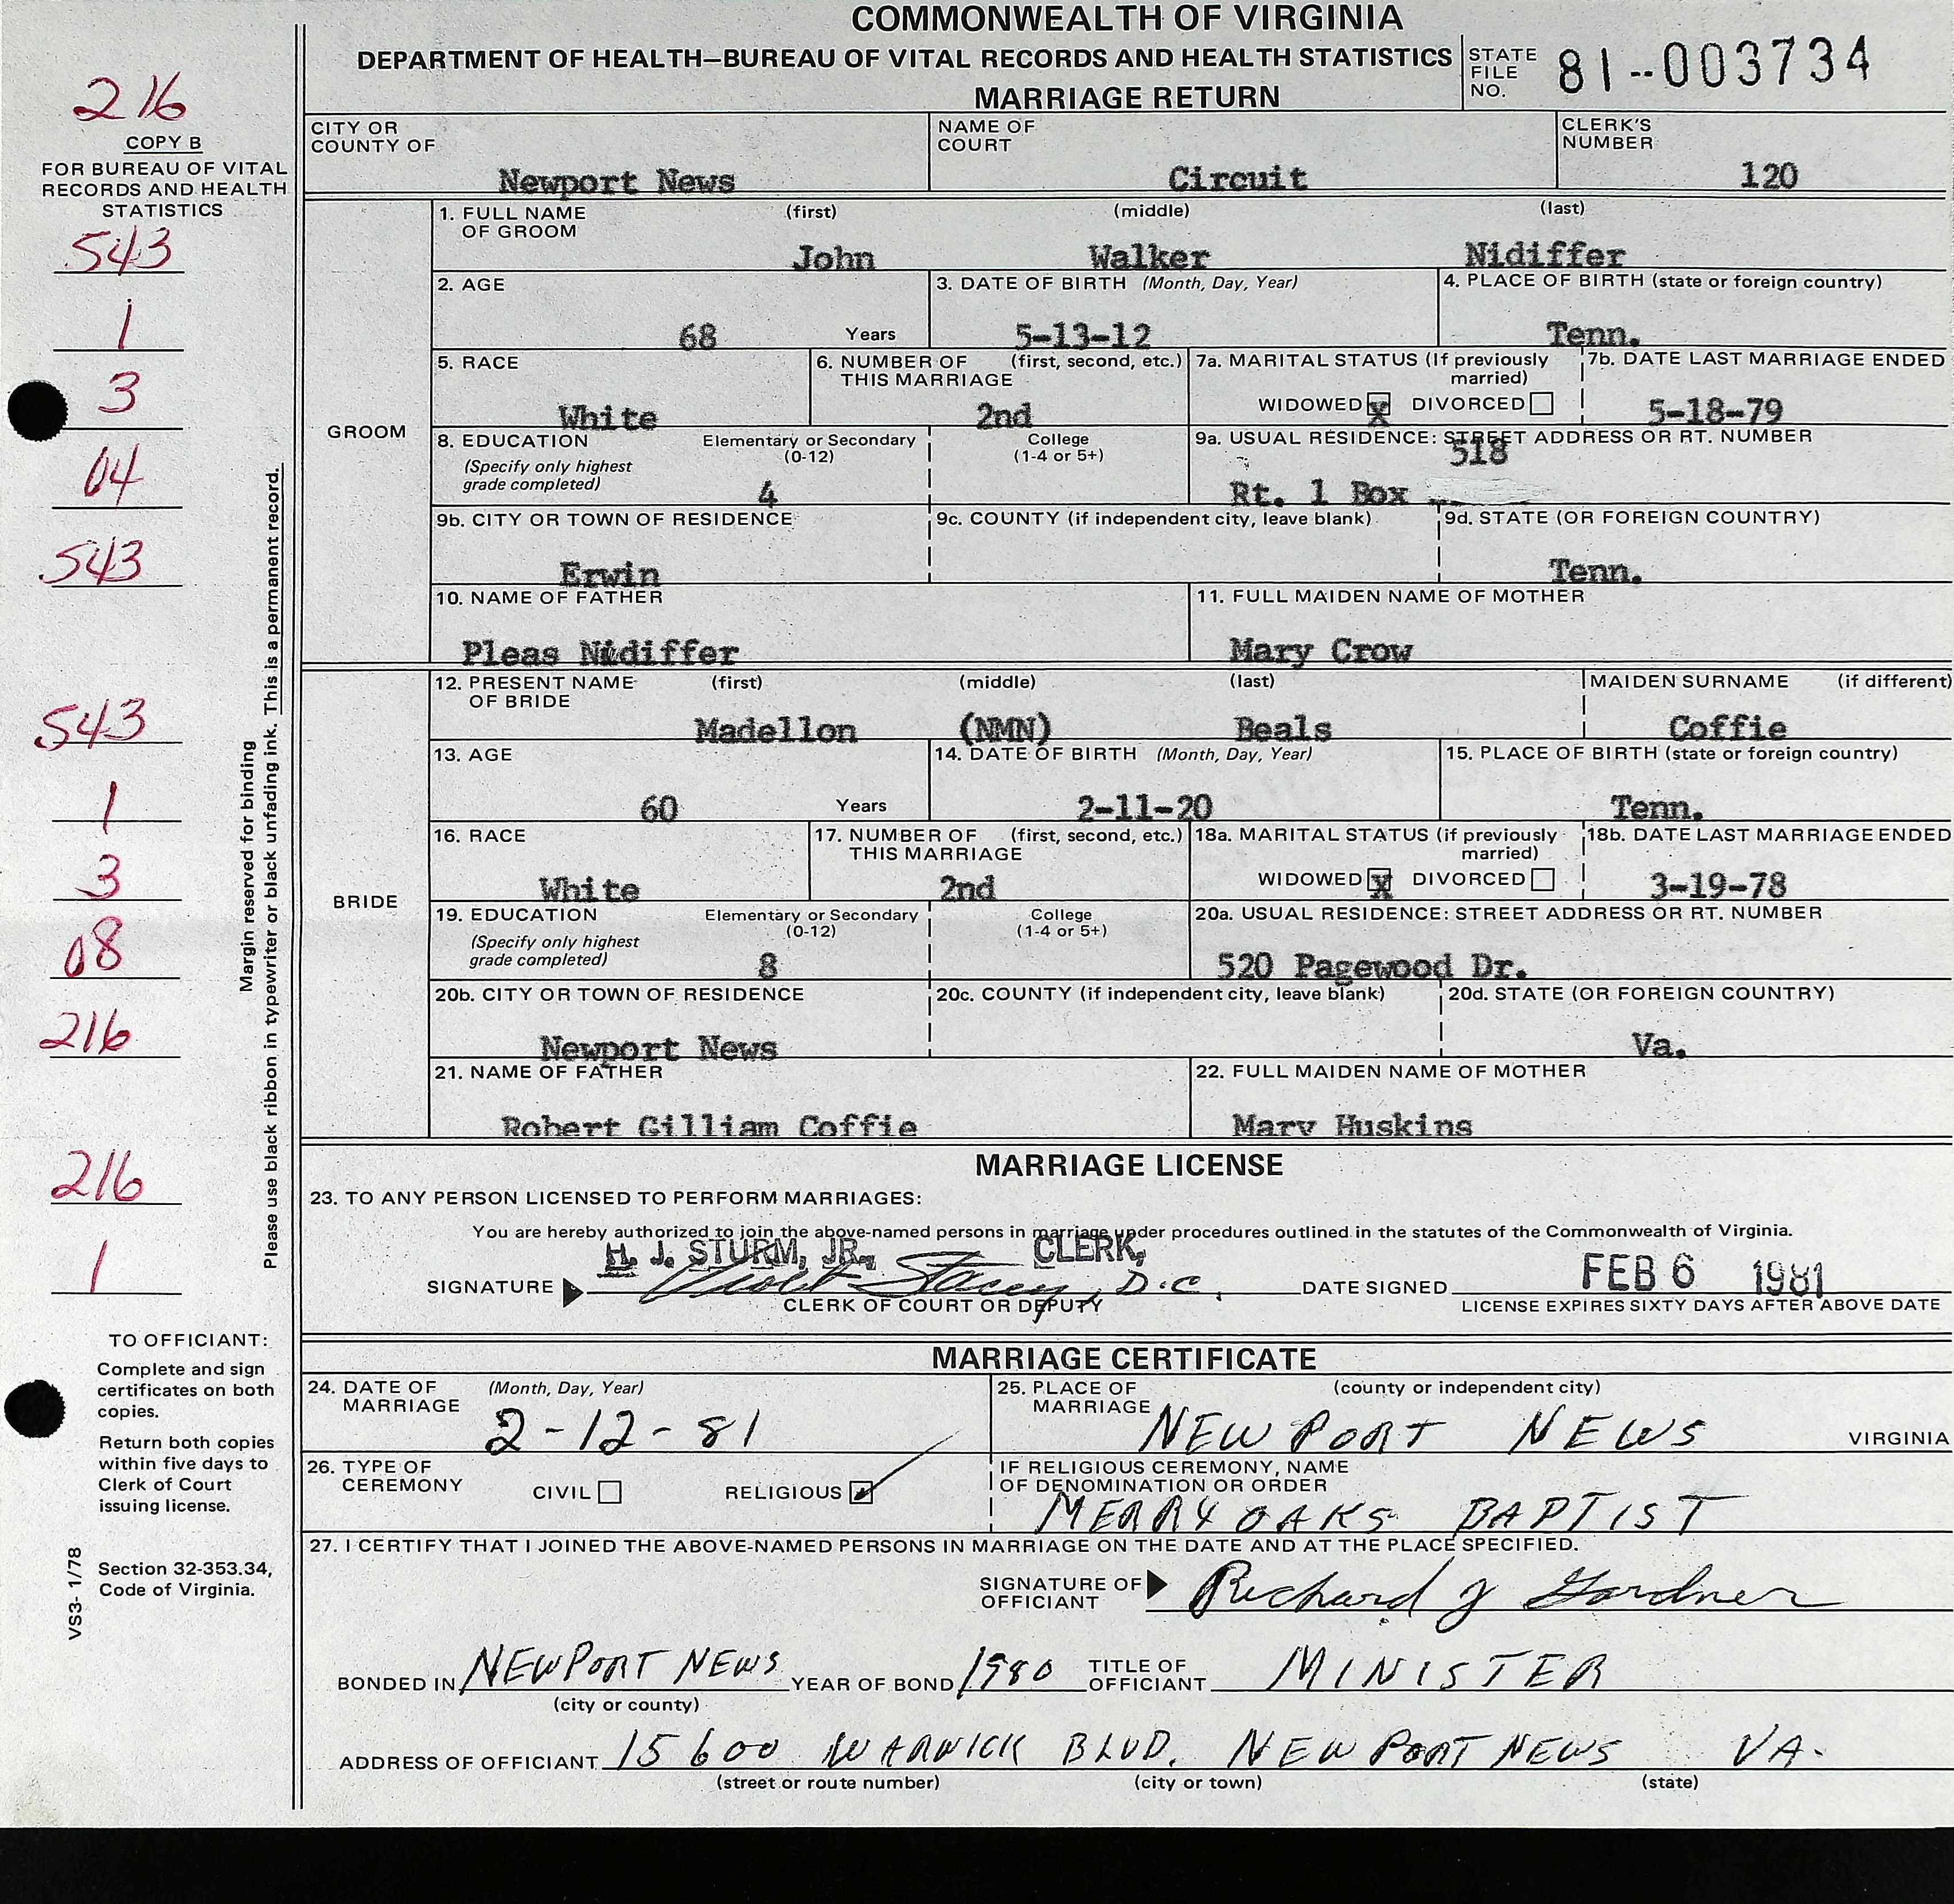 COMMONWEALTH OF VIRGINIA
DEPARTMENT OF HEALTH—BUREAU OF VITAL RECORDS AND HEALTH STATISTICS
MARRIAGE RETURN
STATE FILE NO. 81--003734
216
COPY B
FOR BUREAU OF VITAL
RECORDS AND HEALTH
STATISTICS
543
1
3
04
543
543
1
3
08
216
216
1
Margin reserved for binding
Please use black ribbon in typewriter or black unfading ink. This is a permanent record.
TO OFFICIANT:
Complete and sign
certificates on both
copies.
Return both copies
within five days to
Clerk of Court
issuing license.
Section 32-353.34,
Code of Virginia.
VS3- 1/78
CITY OR COUNTY OF Newport News
NAME OF COURT Circuit
CLERK'S NUMBER 120
GROOM
1. FULL NAME OF GROOM (first) (middle) (last)
John Walker Nidiffer
2. AGE 68 Years
3. DATE OF BIRTH (Month, Day, Year) 5-13-12
4. PLACE OF BIRTH (state or foreign country) Tenn.
5. RACE White
6. NUMBER OF THIS MARRIAGE (first, second, etc.) 2nd
7a. MARITAL STATUS (If previously married) WIDOWED x DIVORCED
7b. DATE LAST MARRIAGE ENDED 5-18-79
8. EDUCATION (Specify only highest grade completed) Elementary or Secondary (0-12) 4 College (1-4 or 5+)
9a. USUAL RESIDENCE: STREET ADDRESS OR RT. NUMBER
518
Rt. 1 Box
9b. CITY OR TOWN OF RESIDENCE Erwin
9c. COUNTY (if independent city, leave blank)
9d. STATE (OR FOREIGN COUNTRY) Tenn.
10. NAME OF FATHER Pleas Nidiffer
11. FULL MAIDEN NAME OF MOTHER Mary Crow
BRIDE
12. PRESENT NAME OF BRIDE (first) (middle) (last) MAIDEN SURNAME (if different)
Madellon (NMN) Beals Coffie
13. AGE 60 Years
14. DATE OF BIRTH (Month, Day, Year) 2-11-20
15. PLACE OF BIRTH (state or foreign country) Tenn.
16. RACE White
17. NUMBER OF THIS MARRIAGE (first, second, etc.) 2nd
18a. MARITAL STATUS (if previously married) WIDOWED X DIVORCED
18b. DATE LAST MARRIAGE ENDED 3-19-78
19. EDUCATION (Specify only highest grade completed) Elementary or Secondary (0-12) 8 College (1-4 or 5+)
20a. USUAL RESIDENCE: STREET ADDRESS OR RT. NUMBER 520 Pagewood Dr.
20b. CITY OR TOWN OF RESIDENCE Newport News
20c. COUNTY (if independent city, leave blank)
20d. STATE (OR FOREIGN COUNTRY) Va.
21. NAME OF FATHER Robert Gilliam Coffie
22. FULL MAIDEN NAME OF MOTHER Mary Huskins
MARRIAGE LICENSE
23. TO ANY PERSON LICENSED TO PERFORM MARRIAGES:
You are hereby authorized to join the above-named persons in marriage under procedures outlined in the statutes of the Commonwealth of Virginia.
H. J. STURM, JR., CLERK,
SIGNATURE Violet Stacey, D.C. DATE SIGNED FEB 6 1981
CLERK OF COURT OR DEPUTY
LICENSE EXPIRES SIXTY DAYS AFTER ABOVE DATE
MARRIAGE CERTIFICATE
24. DATE OF MARRIAGE (Month, Day, Year) 2-12-81
25. PLACE OF MARRIAGE (county or independent city) NEWPORT NEWS VIRGINIA
26. TYPE OF CEREMONY CIVIL RELIGIOUS
IF RELIGIOUS CEREMONY, NAME OF DENOMINATION OR ORDER
MERRY OAKS BAPTIST
27. I CERTIFY THAT I JOINED THE ABOVE-NAMED PERSONS IN MARRIAGE ON THE DATE AND AT THE PLACE SPECIFIED.
SIGNATURE OF OFFICIANT Richard J Gardner
BONDED IN NEWPORT NEWS YEAR OF BOND 1980 TITLE OF OFFICIANT MINISTER
(city or county)
ADDRESS OF OFFICIANT 15600 WARWICK BLVD. NEWPORT NEWS VA.
(street or route number) (city or town) (state)